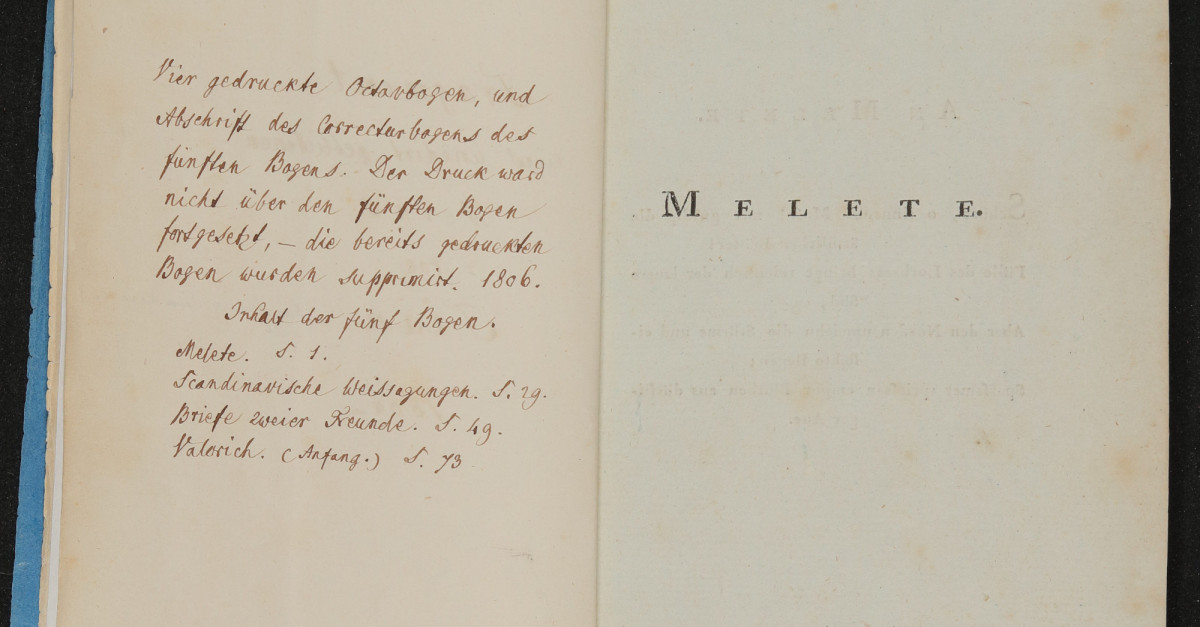 Vier gedruckte Octavbogen, und
Abschrift des Correcturbogens des
fünften Bogens. Der Druck ward
nicht über den fünften Bogen
fortgesetzt, — die bereits gedruckten
Bogen wurden supprimirt. 1806.
Inhalt der fünf Bogen.
Melete. S. 1.
Scandinavische Weissagungen. S. 29.
Briefe zweier Freunde. S. 49.
Valorich. (Anfang.) S. 73
MELETE.
AN MELETE.